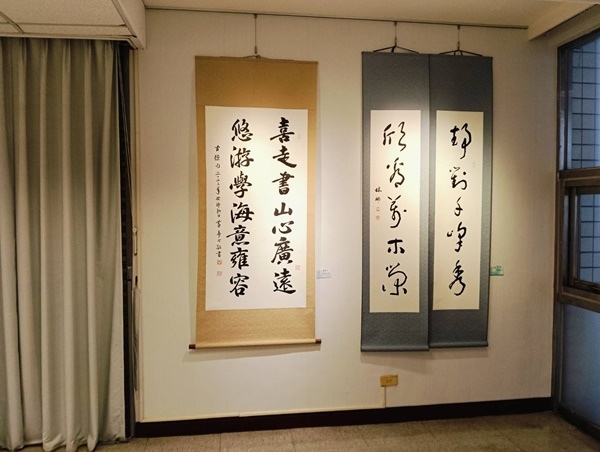 靜對千峰秀
欣看萬木榮
喜走書山心廣遠
悠游學海意雍容